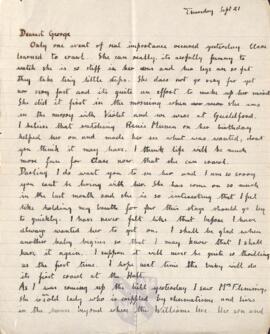 Thursday Sept 21
Dearest George
Only one event of real importance occured yesterday Clare
learned to crawl. She can really, its awfully funny to
watch she is so stiff in her arms and her legs are so fat
they take tiny little steps. She does not go very far yet
nor very fast and its quite an effort to make up her mind
She did it first in the morning when she was
in the nursery with Violet and we were at Guildford.
I believe that watching on her birthday
helped her on and made her see what was wanted, dont
you think it may have. I think life will be much
more fun for Clare now that she can crawl.
Darling I do want you to see her and I am so sorry
you cant be living with her. She has come on so much
in the last month and she is so interesting that I feel
like holding my breath for fear this stage should go by
to quickly. I have never felt like that before I have
always wanted her to get on. I shall be glad when
another baby begins so that I may know that I shall
have it again. I suppose it will never be quite so thrilling
as the first time. I hope next time the baby will do
its first crawl at the Holt
As I was coming up the hill yesterday I saw Mrs Fleming,
she is old lady who is crippled by rheumatism and lives
in the house beyond where the Williams live. Her son and